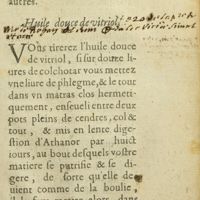 autres.
Huile douce de vitriol.
VOus tirerez l'huile douce
de vitriol, si sur douze li-
ures de colchotar vous mettez
vne liure de phlegme, & le tout
dans vn matras clos hermeti-
quement, enseueli entre deux
pots pleins de cendres, col &
tout, & mis en lente dige-
stion d'Athanor par huict
iours, au bout desquels vostre
matiere se putrifie & se di-
gere, de sorte qu'elle de-
uient comme de la boulie,